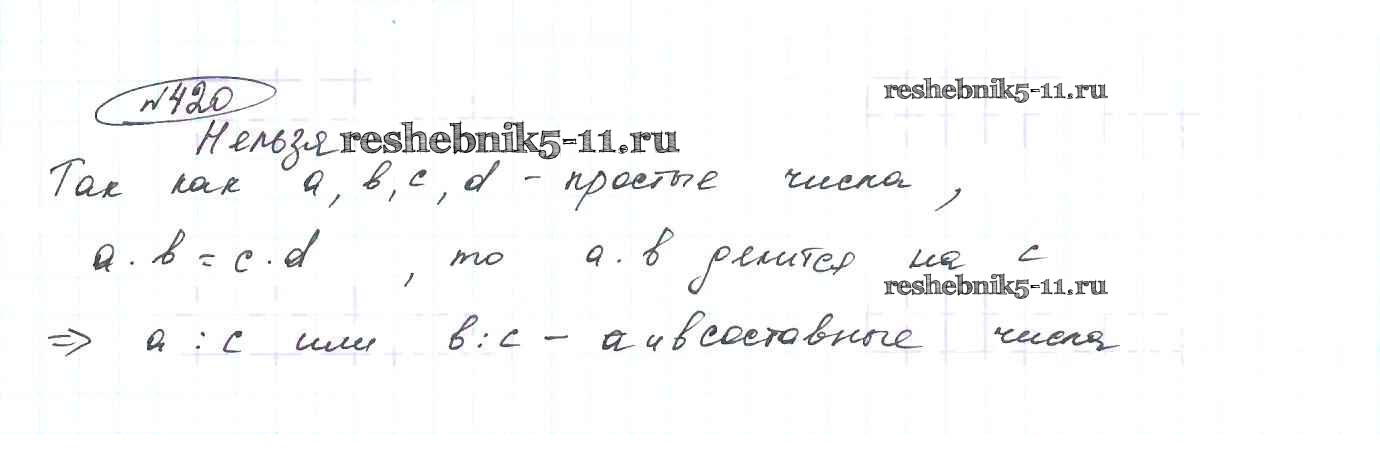 №420 reshebnik5-11.ru
Нельзя reshebnik5-11.ru
Так как a, b, c, d - простые числа,
a · b = c · d , то a · b делится на c
reshebnik5-11.ru
=> a : c или b : c - a и b составные числа